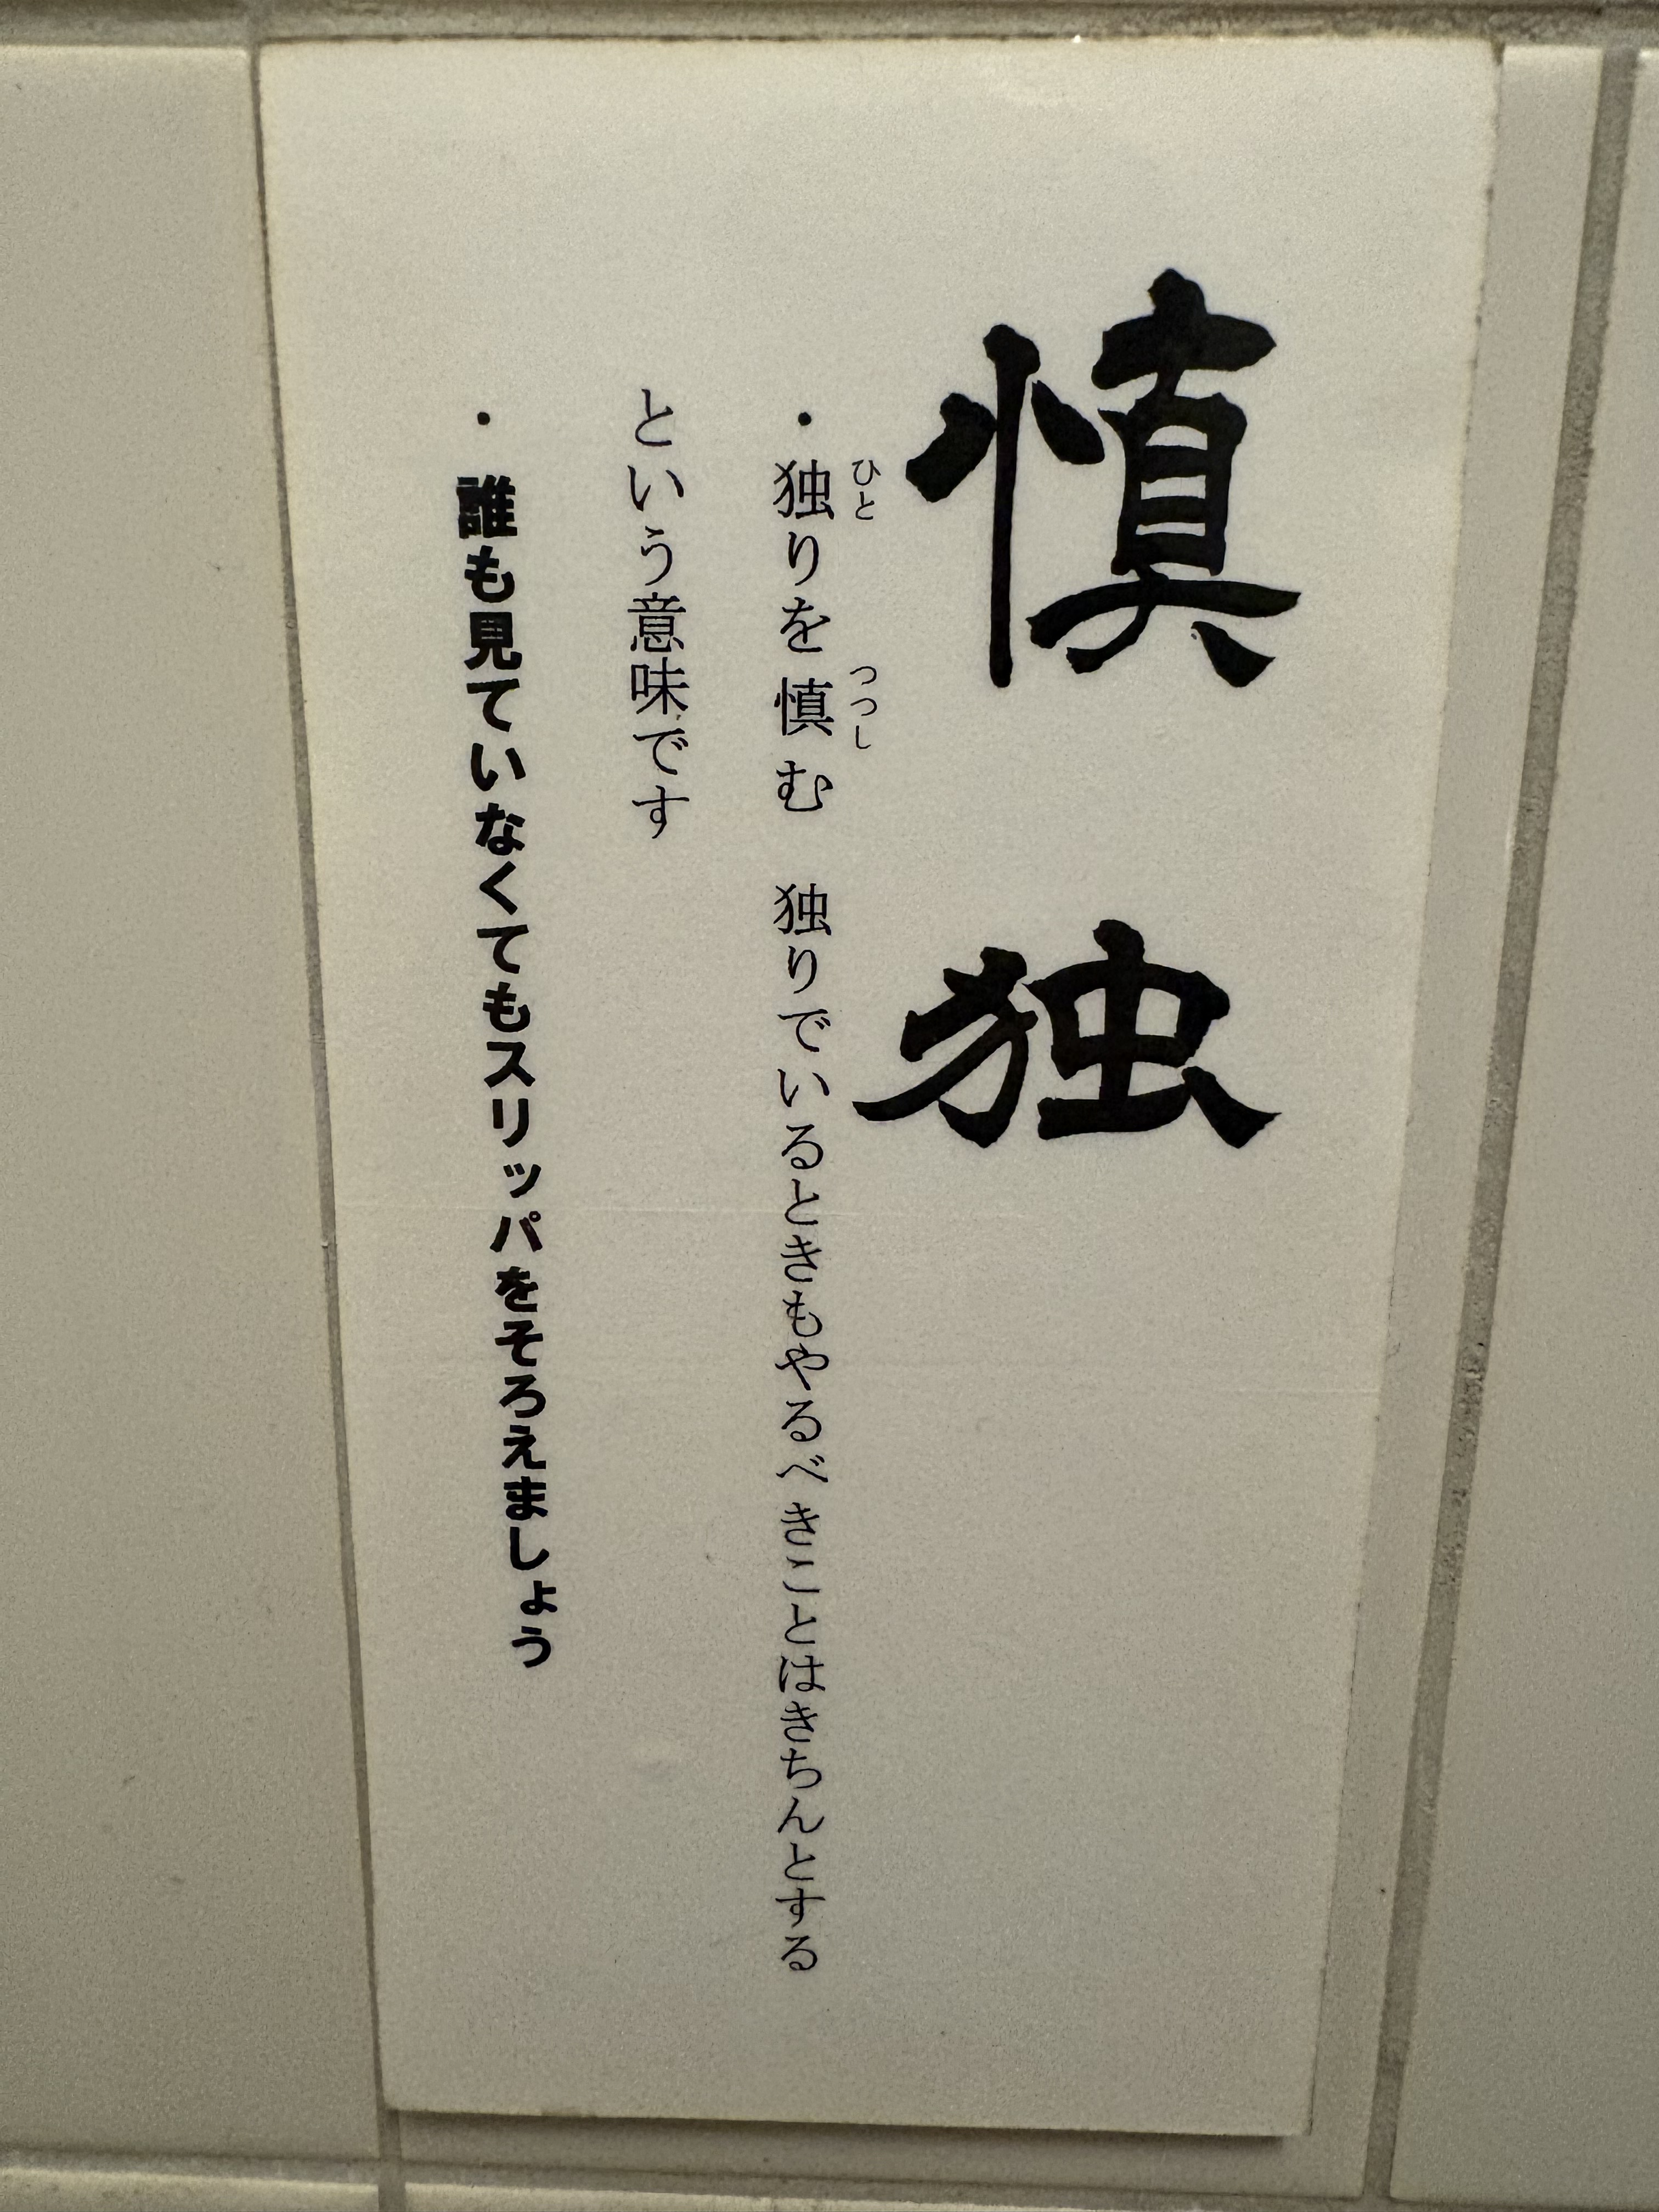 慎独
・独りを慎む　独りでいるときもやるべきことはきちんとする
という意味です
・誰も見ていなくてもスリッパをそろえましょう
ひと
つつし